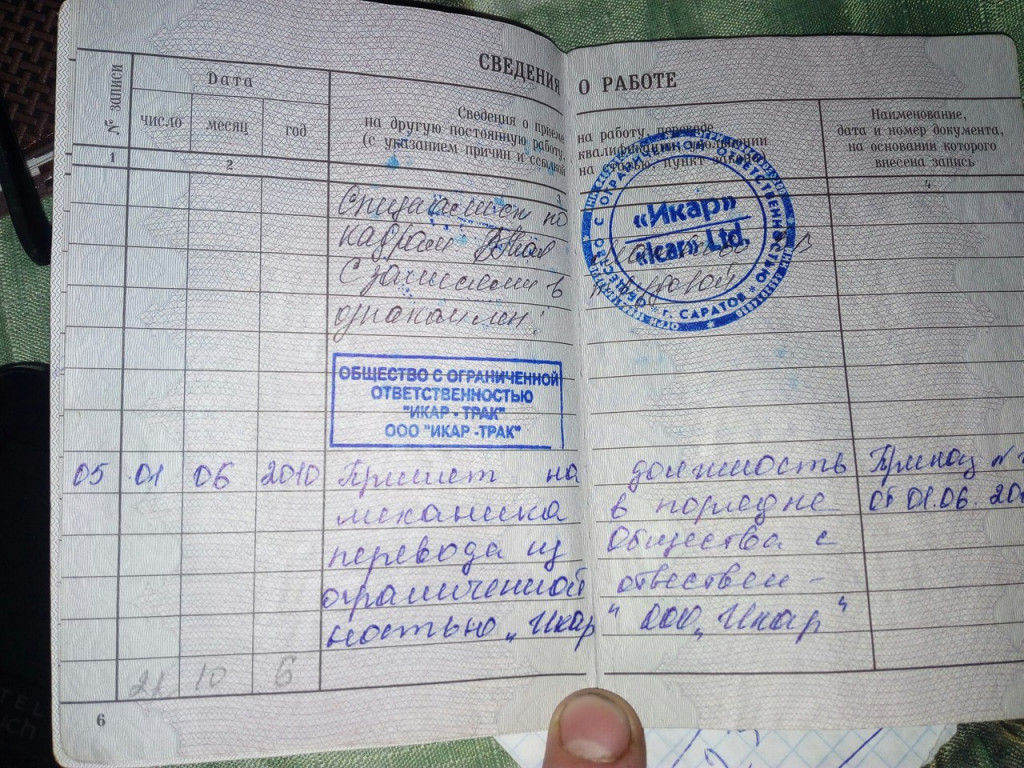 СВЕДЕНИЯ О РАБОТЕ
№ записи
Дата
число
месяц
год
Сведения о приеме на работу, переводе
на другую постоянную работу, квалификации, увольнении
(с указанием причин и ссылкой на статью, пункт закона)
Наименование,
дата и номер документа,
на основании которого
внесена запись
1
2
3
4
Специалист по
кадрам
С записями в трудовой
ознакомлен:
«Икар»
«Icar» Ltd.
г. САРАТОВ
ОБЩЕСТВО С ОГРАНИЧЕННОЙ ОТВЕТСТВЕННОСТЬЮ
ОБЩЕСТВО С ОГРАНИЧЕННОЙ
ОТВЕТСТВЕННОСТЬЮ
"ИКАР - ТРАК"
ООО "ИКАР -ТРАК"
05 01 06 2010 Принят на должность Приказ
механика в порядке от 01.06.
перевода из Общества с
ограниченной отвествен-
ностью „Икар" ООО „Икар"
21 10 6
6